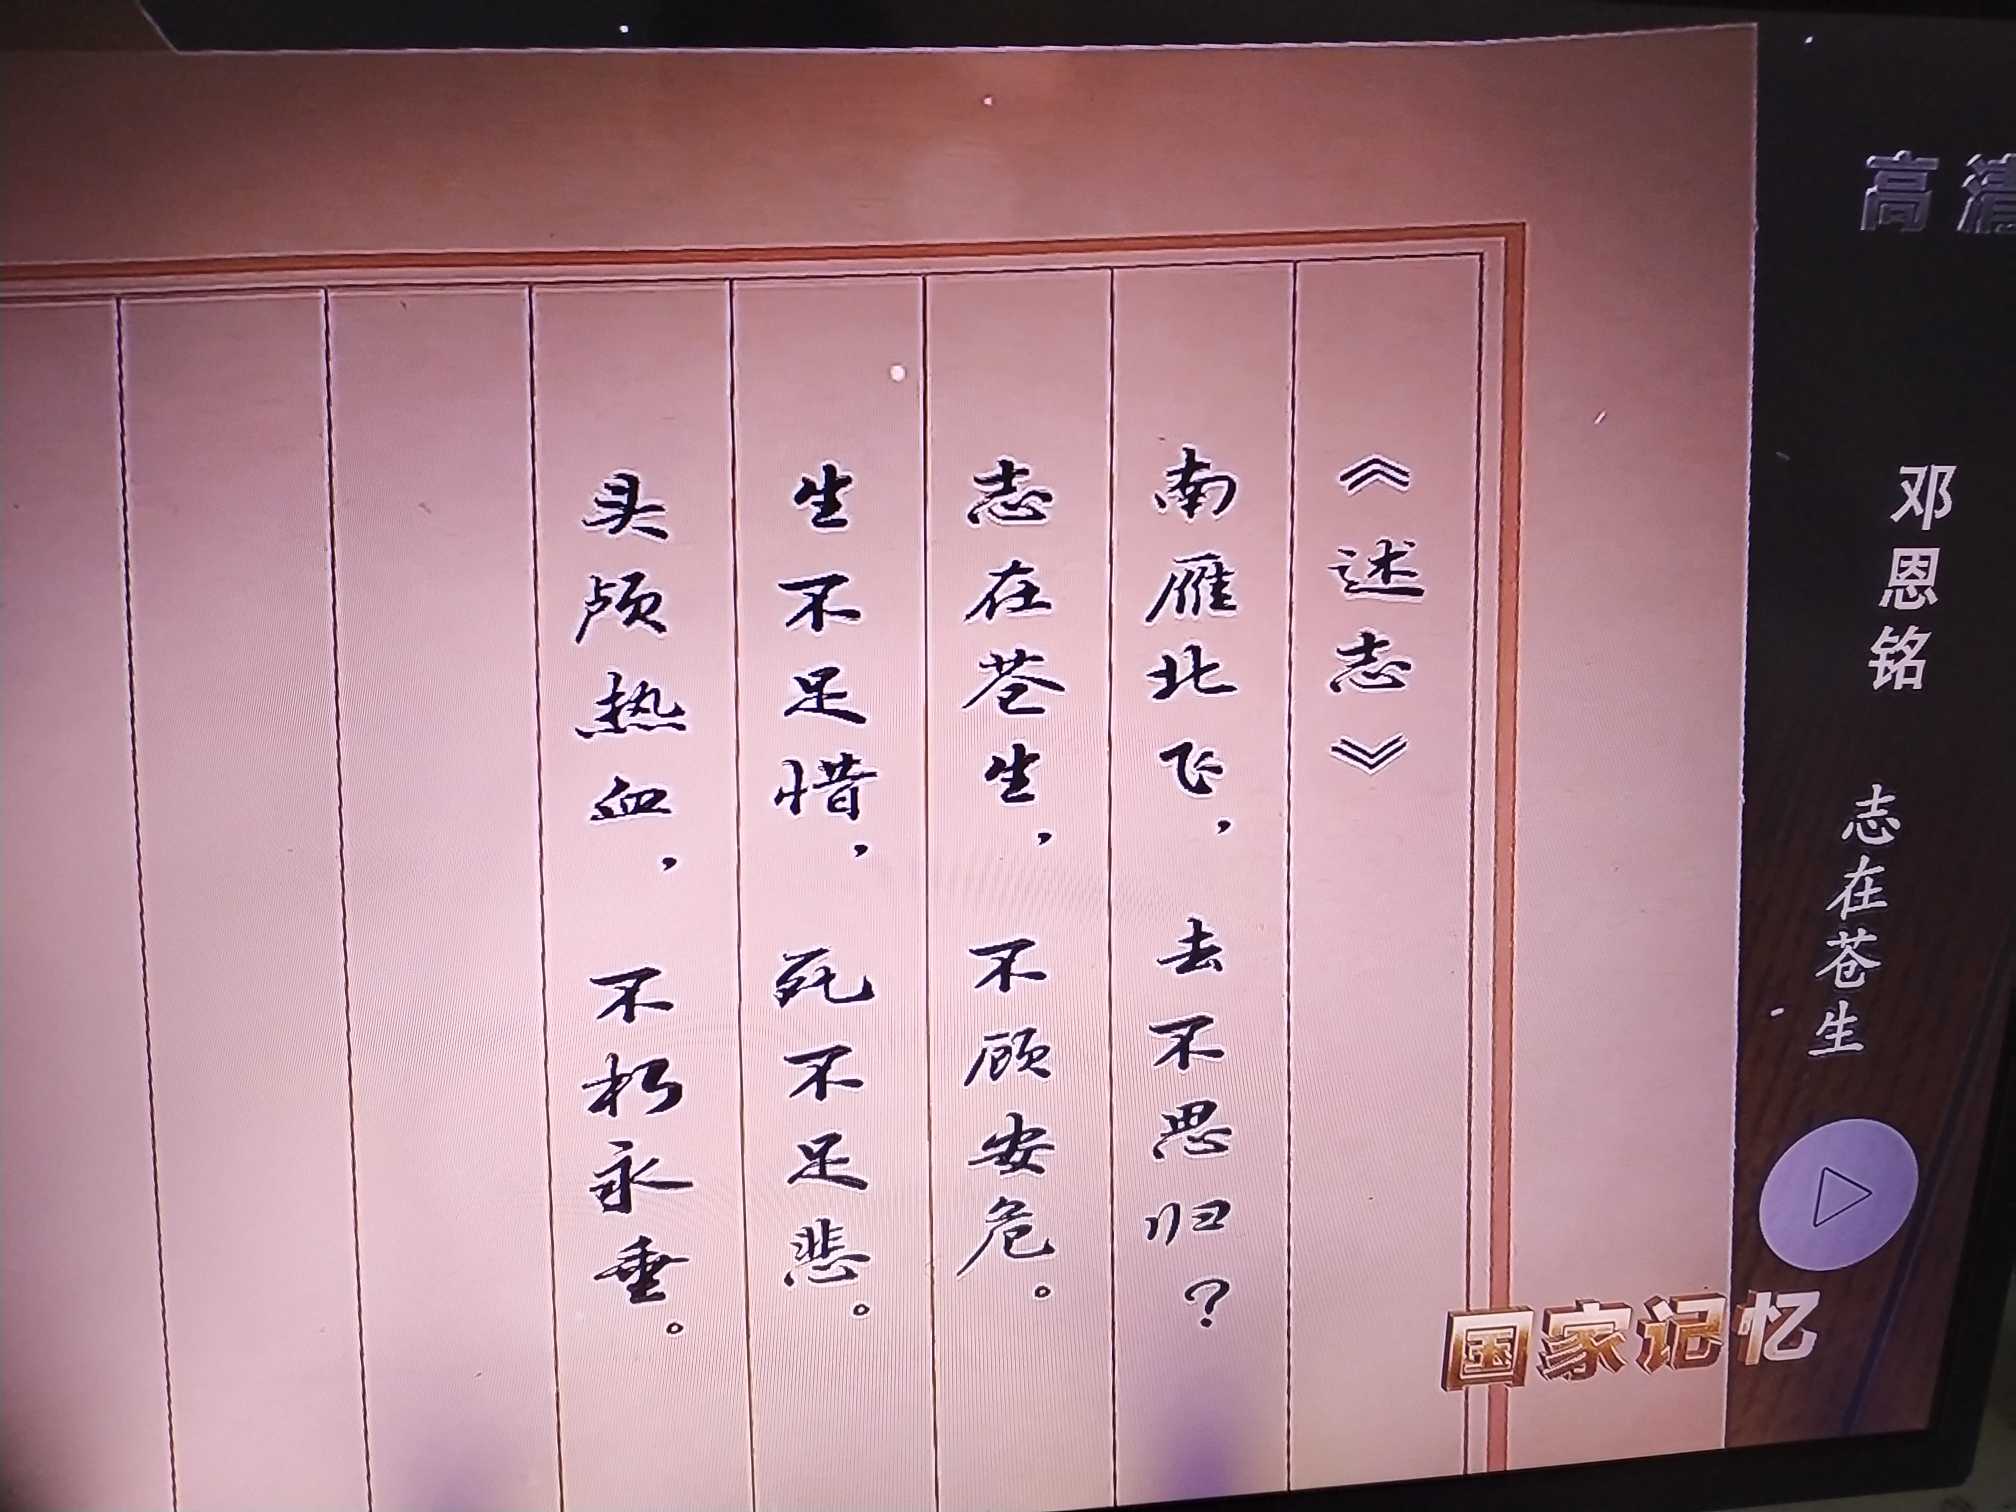 《述志》
南雁北飞，去不思归？
志在苍生，不顾安危。
生不足惜，死不足悲。
头颅热血，不朽永垂。
高清
邓恩铭 志在苍生
国家记忆